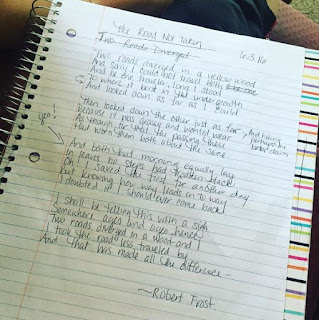 The Road Not Taken
Two Roads Diverged
6.3.16
Two roads diverged in a yellow wood
And sorry I could not travel both
And be one traveler, long I stood
To where it bent in the undergrowth
And looked down as far as I could
Then looked down the other just as far, And having perhaps the better claim
because it was grassy and wanted wear
As though for that the passing there
Had worn them both about the same
yes!
And both that morning equally lay
In leaves no step had trodden black
Oh! I saved the first for another day
but knowing how way leads on to way
I doubted if I should ever come back
I shall be telling this with a sigh
Somewhere ages and ages hence
Two roads diverged in a wood and I
I took the road less traveled by
And that has made all the difference –
~Robert Frost.